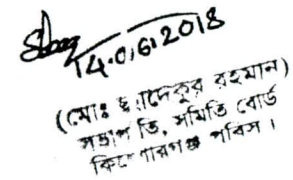 14.06.2018
(মোঃ ছাদেকুর রহমান)
সভাপতি, সমিতি বোর্ড
কিশোরগঞ্জ পবিস।